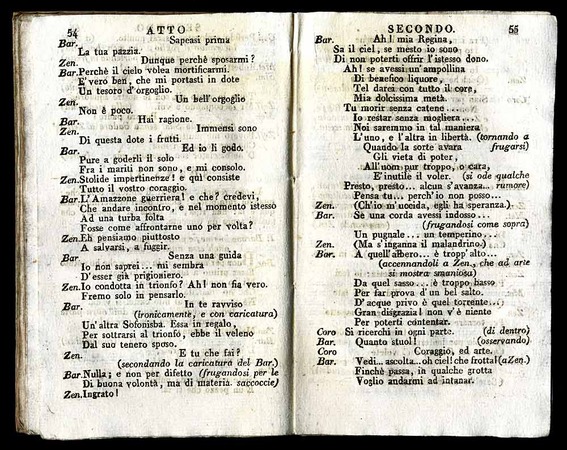 54
ATTO
Bar. Sapeasi prima
La tua pazzia.
Zen. Dunque perchè sposarmi?
Bar. Perchè il cielo volea mortificarmi.
E' vero ben, che mi portasti in dote
Un tesoro d'orgoglio.
Zen. Un bell'orgoglio
Non è poco.
Bar. Hai ragione.
Zen. Immensi sono
Di questa dote i frutti.
Bar. Ed io li godo.
Pure a goderli il solo
Fra i mariti non sono, e mi consolo.
Zen. Stolide impertinenze! e qui consiste
Tutto il vostro coraggio.
Bar. L'Amazzone guerriera! e che? credevi,
Che andare incontro, e nel momento istesso
Ad una turba folta
Fosse come affrontarne uno per volta?
Zen. Eh pensiamo piuttosto
A salvarsi, a fuggir.
Bar Senza una guida
Io non saprei... mi sembra
D'esser già prigioniero.
Zen. Io condotta in trionfo? Ah! non fia vero.
Fremo solo in pensarlo.
Bar. In te ravviso
(ironicamente, e con caricatura)
Un'altra Sofonisba. Essa in regalo,
Per sottrarsi al trionfo, ebbe il veleno
Dal suo tenero sposo.
Zen. E tu che fai?
(secondando la caricatura del Bar.)
Bar. Nulla; e non per difetto (frugandosi per le
Di buona volontà, ma di materia. saccoccie)
Zen. Ingrato!
SECONDO.
55
Bar. Ah! mia Regina,
Sa il ciel, se mesto io sono
Di non poterti offrir l'istesso dono.
Ah! se avessi un'ampollina
Di benefico liquore,
Tel darei con tutto il core,
Mia dolcissima metà.
Tu morir senza catene...
Io restar senza mogliera...
Noi saremmo in tal maniera
L'uno, e l'altra in libertà. (tornando a
Quando la sorte avara frugarsi)
Gli vieta di poter,
All'uom pur troppo, o cara,
E' inutile il voler. (si ode qualche
Presto, presto... alcun s'avanza.. rumore)
Pensa tu.. perch'io non posso...
Zen. (Ch'io m'uccida, egli ha speranza.)
Bar. Se una corda avessi indosso...
(frugandosi come sopra)
Un pugnale... un temperino...
Zen. (Ma s'inganna il malandrino.)
Bar. A quell'albero... è trop'alto...
(accennandoli a Zen., che ad arte
si mostra smaniosa)
Da quel sasso... è troppo basso
Per far prova d'un bel salto.
D'acque privo è quel torrente...
Gran disgrazia! non v'è niente
Per poterti contentar.
Coro Si ricerchi in ogni parte. (di dentro)
Bar. Quanto stuol! (osservando)
Coro Coraggio, ed arte.
Bar. Vedi.. ascolta.. oh ciel! che frotta! (a Zen.)
Finchè passa, in qualche grotta
Voglio andarmi ad intanar.